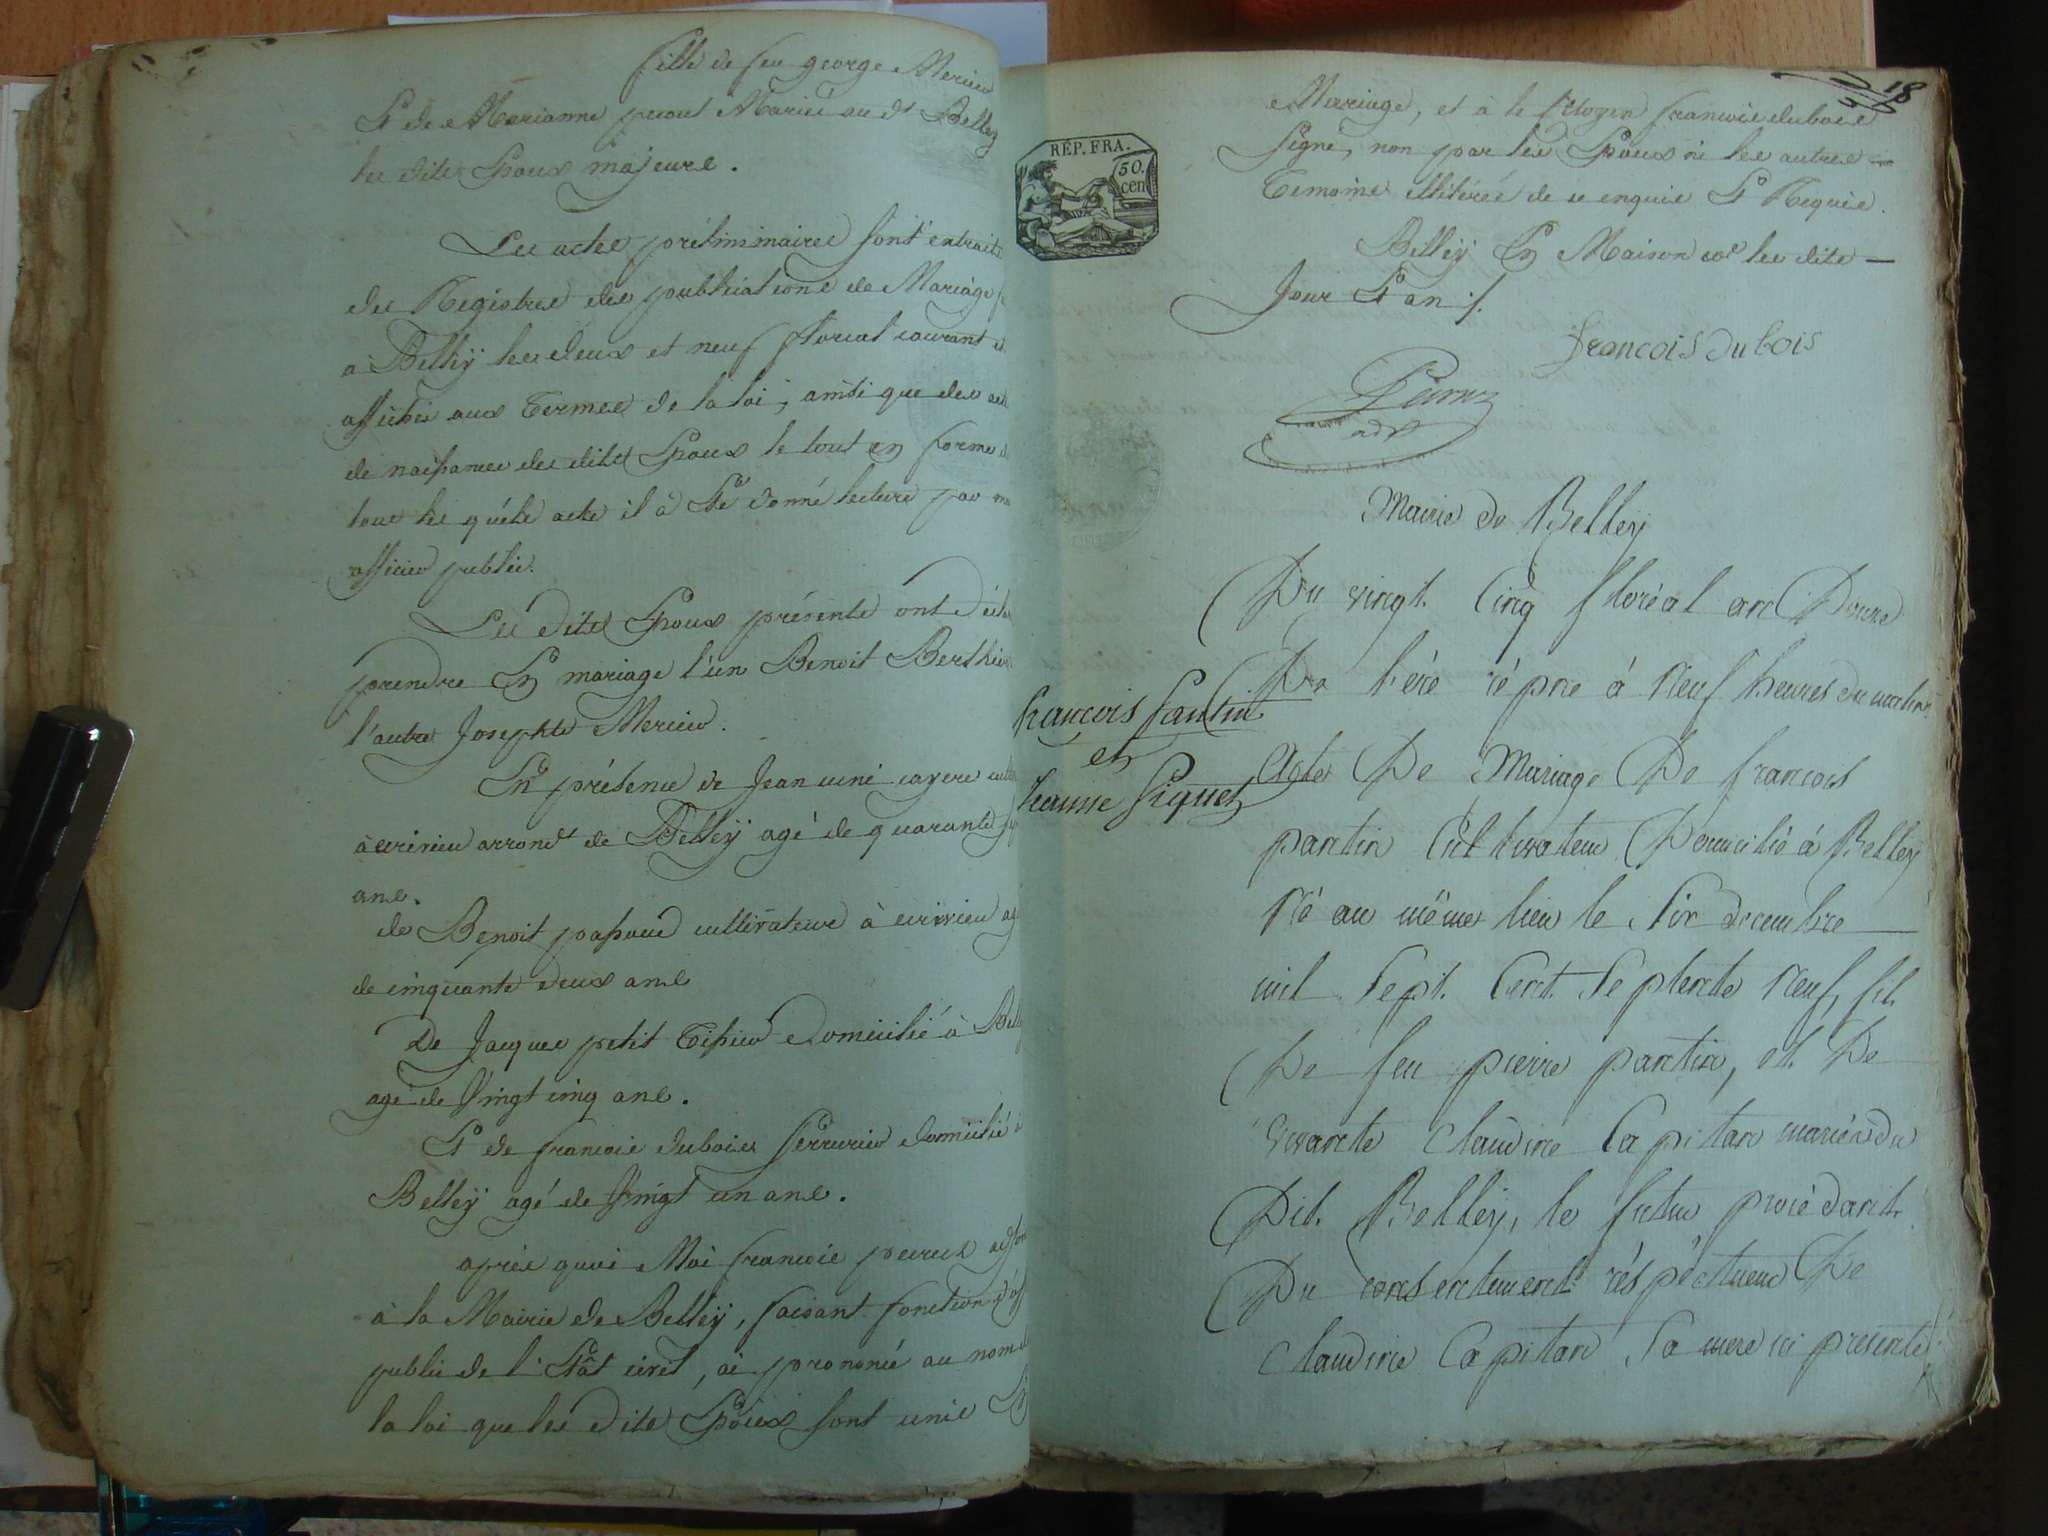 fille de feu george Mercier
Et de Marianne Mariés au dt Belley
les dits Epoux majeurs.
Les actes préliminaires sont extraits
des Registres des publications de Mariage
a Belley les deux et neuf floréal courant et
affichés aux Termes de la loi, ainsi que des
de naissance des dits Epoux le tout en forme
tous les quéls acte il à Eté donné lecture par
officier public.
Les dits Epoux présents ont
prendre En mariage l'un Benoit
l'autre Josephte Mercier.
En présence de Jean
arrondt de Belley agé de quarante
ans.
de Benoit cultivateur à
de cinquante deux ans
De Jacques petit Tissier Domicilié à
agé de Vingt cinq ans.
Et de francois dubois serrurier Domicilié à
Belley agé de Vingt un ans.
après quoi Moi francois
à la Mairie de Belley, faisant fonction
public de l'Etat civil, ai prononcé au nom
la loi que les dits Epoux sont unis
18
RÉP. FRA.
50.
cen
Mariage, et à le Citoyen francois dubois
signé, non par les Epoux ni les autres
Temoins illitérés de ce enquis Et Requis.
Belley En Maison les dits
Jour Et an
francois dubois
adt
Mairie de Belley
Du vingt Cinq floréal an Douze
De l'ére répne á Neuf heures du matin
françois
et
Acte De Mariage De francois
pantin Cultivateur Domicilié á Belley
Né au même lieu le Six decembre
mil Sept Cent Septente Neuf, fil
De feu pierre pantin, et De
vivante Claudine Capitan mariés du
Dit Belley, le futur procédant
Du consentement réspéctueux De
Claudine Capitan Sa mere ici présente